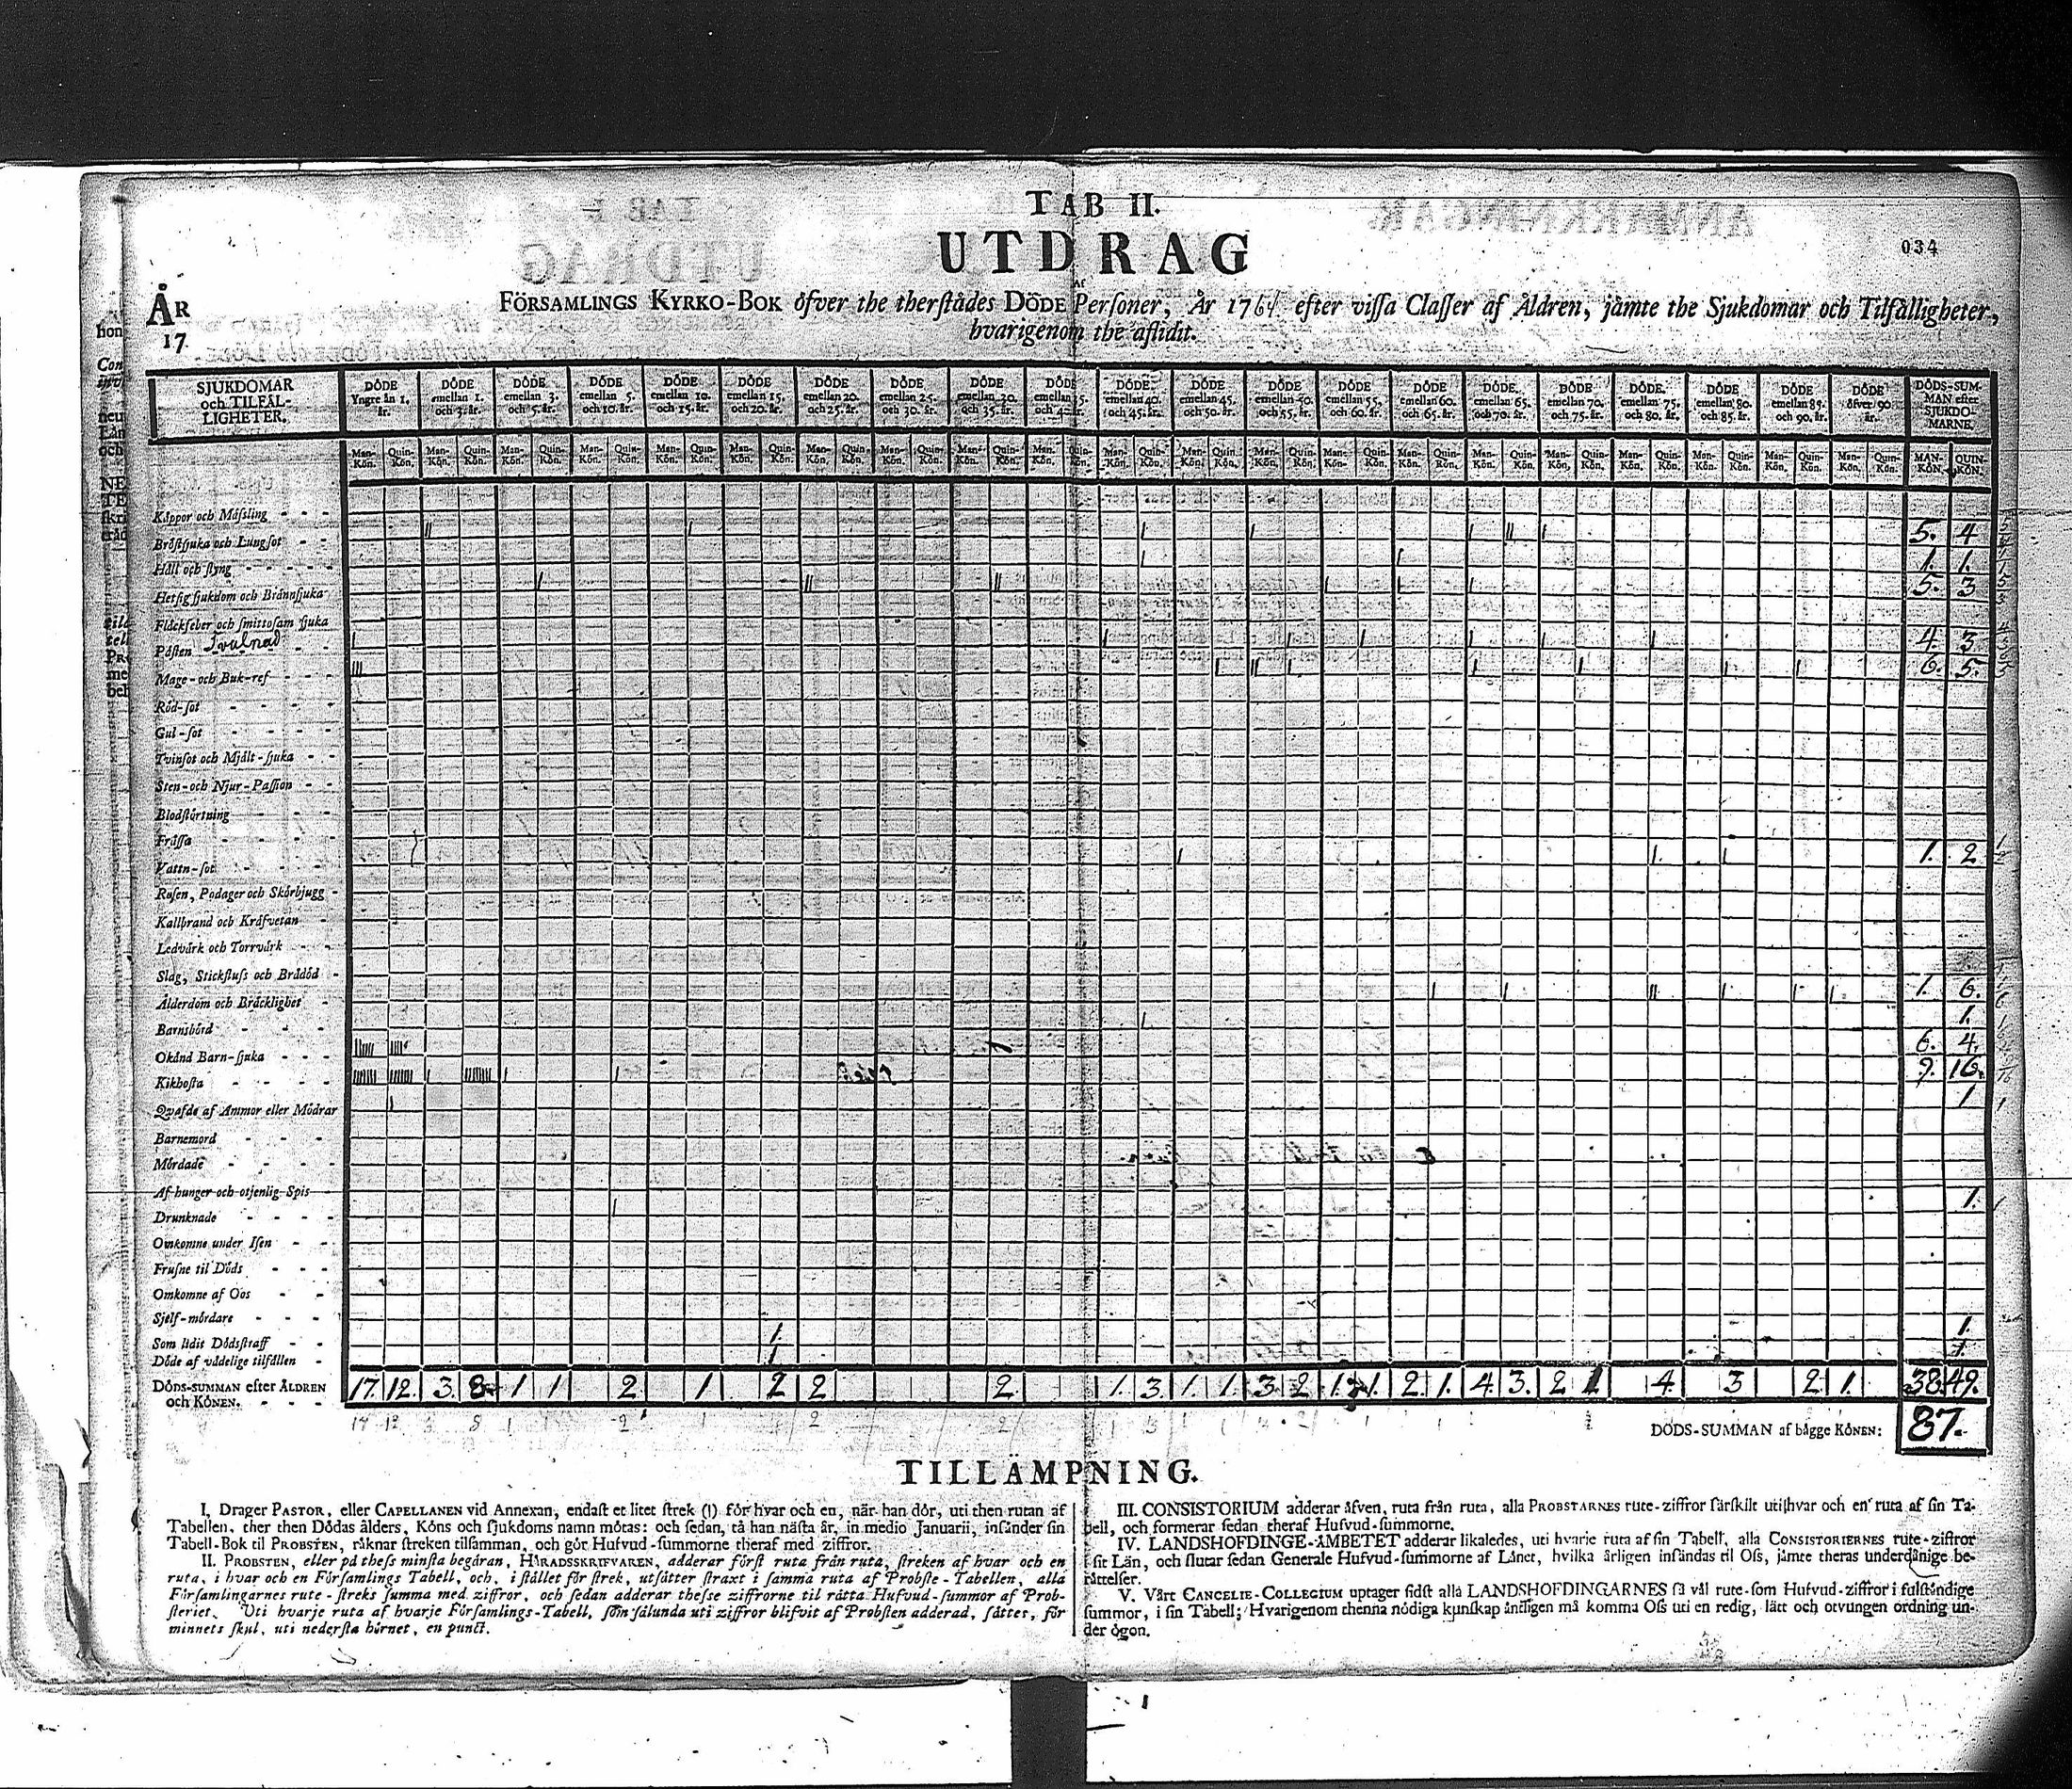 TAB II.
UTDRAG
034
ÅR
17
Af
FÖRSAMLINGS KYRKO-BOK öfver the therstädes DÖDE Personer, År 1764 efter vissa Classer af Åldren, jämte the Sjukdomar och Tilfälligheter,
hvarigenom the aflidit.
SJUKDOMAR och TILFÄL-LIGHETER.
DÖDE Yngre än 1. år.
DÖDE emellan 1. och 3. år.
DÖDE emellan 3. och 5. år.
DÖDE emellan 5. och 10. år.
DÖDE emellan 10. och 15. år.
DÖDE emellan 15. och 20. år.
DÖDE emellan 20. och 25. år.
DÖDE emellan 25. och 30. år.
DÖDE emellan 30. och 35. år.
DÖDE emellan 35. och 40. år.
DÖDE emellan 40. och 45. år.
DÖDE emellan 45. och 50. år.
DÖDE emellan 50. och 55. år.
DÖDE emellan 55. och 60. år.
DÖDE emellan 60. och 65. år.
DÖDE emellan 65. och 70. år.
DÖDE emellan 70. och 75. år.
DÖDE emellan 75. och 80. år.
DÖDE emellan 80. och 85. år.
DÖDE emellan 85. och 90. år.
DÖDE öfver 90. år.
DÖDS-SUMMAN efter SJUKDOMARNE.
Man-Kön. Quin-Kön. Man-Kön. Quin-Kön. Man-Kön. Quin-Kön. Man-Kön. Quin-Kön. Man-Kön. Quin-Kön. Man-Kön. Quin-Kön. Man-Kön. Quin-Kön. Man-Kön. Quin-Kön. Man-Kön. Quin-Kön. Man-Kön. Quin-Kön. Man-Kön. Quin-Kön. Man-Kön. Quin-Kön. Man-Kön. Quin-Kön. Man-Kön. Quin-Kön. Man-Kön. Quin-Kön. Man-Kön. Quin-Kön. Man-Kön. Quin-Kön. Man-Kön. Quin-Kön. Man-Kön. Quin-Kön. Man-Kön. Quin-Kön. Man-Kön. Quin-Kön. MAN-KÖN. QUIN-KÖN.
Kåppor och Mässling
Bröstsjuka och Lungsot 5. 4
Håll och styng 1. 1.
Hetsig sjukdom och Brännsjuka 5. 3
Fläckfeber och smittosam sjuka
Pästen Svulnad 4. 3
Mage- och Buk-ref 6. 5.
Röd-sot
Gul-sot
Tvinsot och Mjält-sjuka
Sten- och Njur-Passion
Blodstörtning
Frässa
Vattn-sot 1. 2
Rosen, Podager och Skörbjugg
Kallbrand och Kräfvetan
Ledvärk och Torrvärk
Slag, Stickfluss och Brådöd
Ålderdom och Bräcklighet 1. 6.
Barnsbörd 1.
Okänd Barn-sjuka 6. 4.
Kikhosta 9. 16.
Qvafde af Ammor eller Mödrar 1
Barnemord
Mördade
Af hunger och otjenlig Spis
Drunknade 1.
Omkomne under Isen
Frusne til Döds
Omkomne af Oos
Sjelf-mördare
Som lidit Dödsstraff 1.
Döde af vådelige tilfällen 1.
DÖDS-SUMMAN efter ÅLDREN och KÖNEN. 17. 12. 3. 8. 1 1 2 1 2 2 2 1. 3. 1. 1. 3. 2 1. 1. 2. 1. 4. 3. 2 1 4. 3 2 1. 38. 49.
DÖDS-SUMMAN af bägge KÖNEN: 87.
TILLÄMPNING.
I, Drager PASTOR, eller CAPELLANEN vid Annexan, endast et litet strek (|) för hvar och en, när han dör, uti then rutan af
Tabellen, ther then Dödas ålders, Köns och sjukdoms namn mötas: och sedan, tå han nästa år, in medio Januarii, insänder sin
Tabell-Bok til PROBSTEN, räknar streken tilsamman, och gör Hufvud-summorne theraf med ziffror.
II. PROBSTEN, eller på thess minsta begäran, HÄRADSSKRIFVAREN, adderar först ruta från ruta, streken af hvar och en
ruta, i hvar och en Församlings Tabell, och, i stället för strek, utsätter straxt i samma ruta af Probste-Tabellen, alla
Församlingarnes rute-streks summa med ziffror, och sedan adderar thesse ziffrorne til rätta Hufvud-summor af Prob-
steriet. Uti hvarje ruta af hvarje Församlings-Tabell, som sålunda uti ziffror blifvit af Probsten adderad, sättes, för
minnets skul, uti nedersta hörnet, en punct.
III. CONSISTORIUM adderar äfven, ruta från ruta, alla PROBSTARNES rute-ziffror särskilt uti hvar och en ruta af sin Ta-
bell, och formerar sedan theraf Hufvud-summorne.
IV. LANDSHÖFDINGE-ÄMBETET adderar likaledes, uti hvarje ruta af sin Tabell, alla CONSISTORIERNES rute-ziffror
i sit Län, och slutar sedan Generale Hufvud-summorne af Länet, hvilka årligen insändas til Oss, jämte theras underdånige be-
rättelser.
V. Vårt CANCELIE-COLLEGIUM uptager sidst alla LANDSHÖFDINGARNES så väl rute-som Hufvud-ziffror i fulständige
summor, i sin Tabell; Hvarigenom thenna nödiga kunskap äntligen må komma Oss uti en redig, lätt och otvungen ordning un-
der ögon.